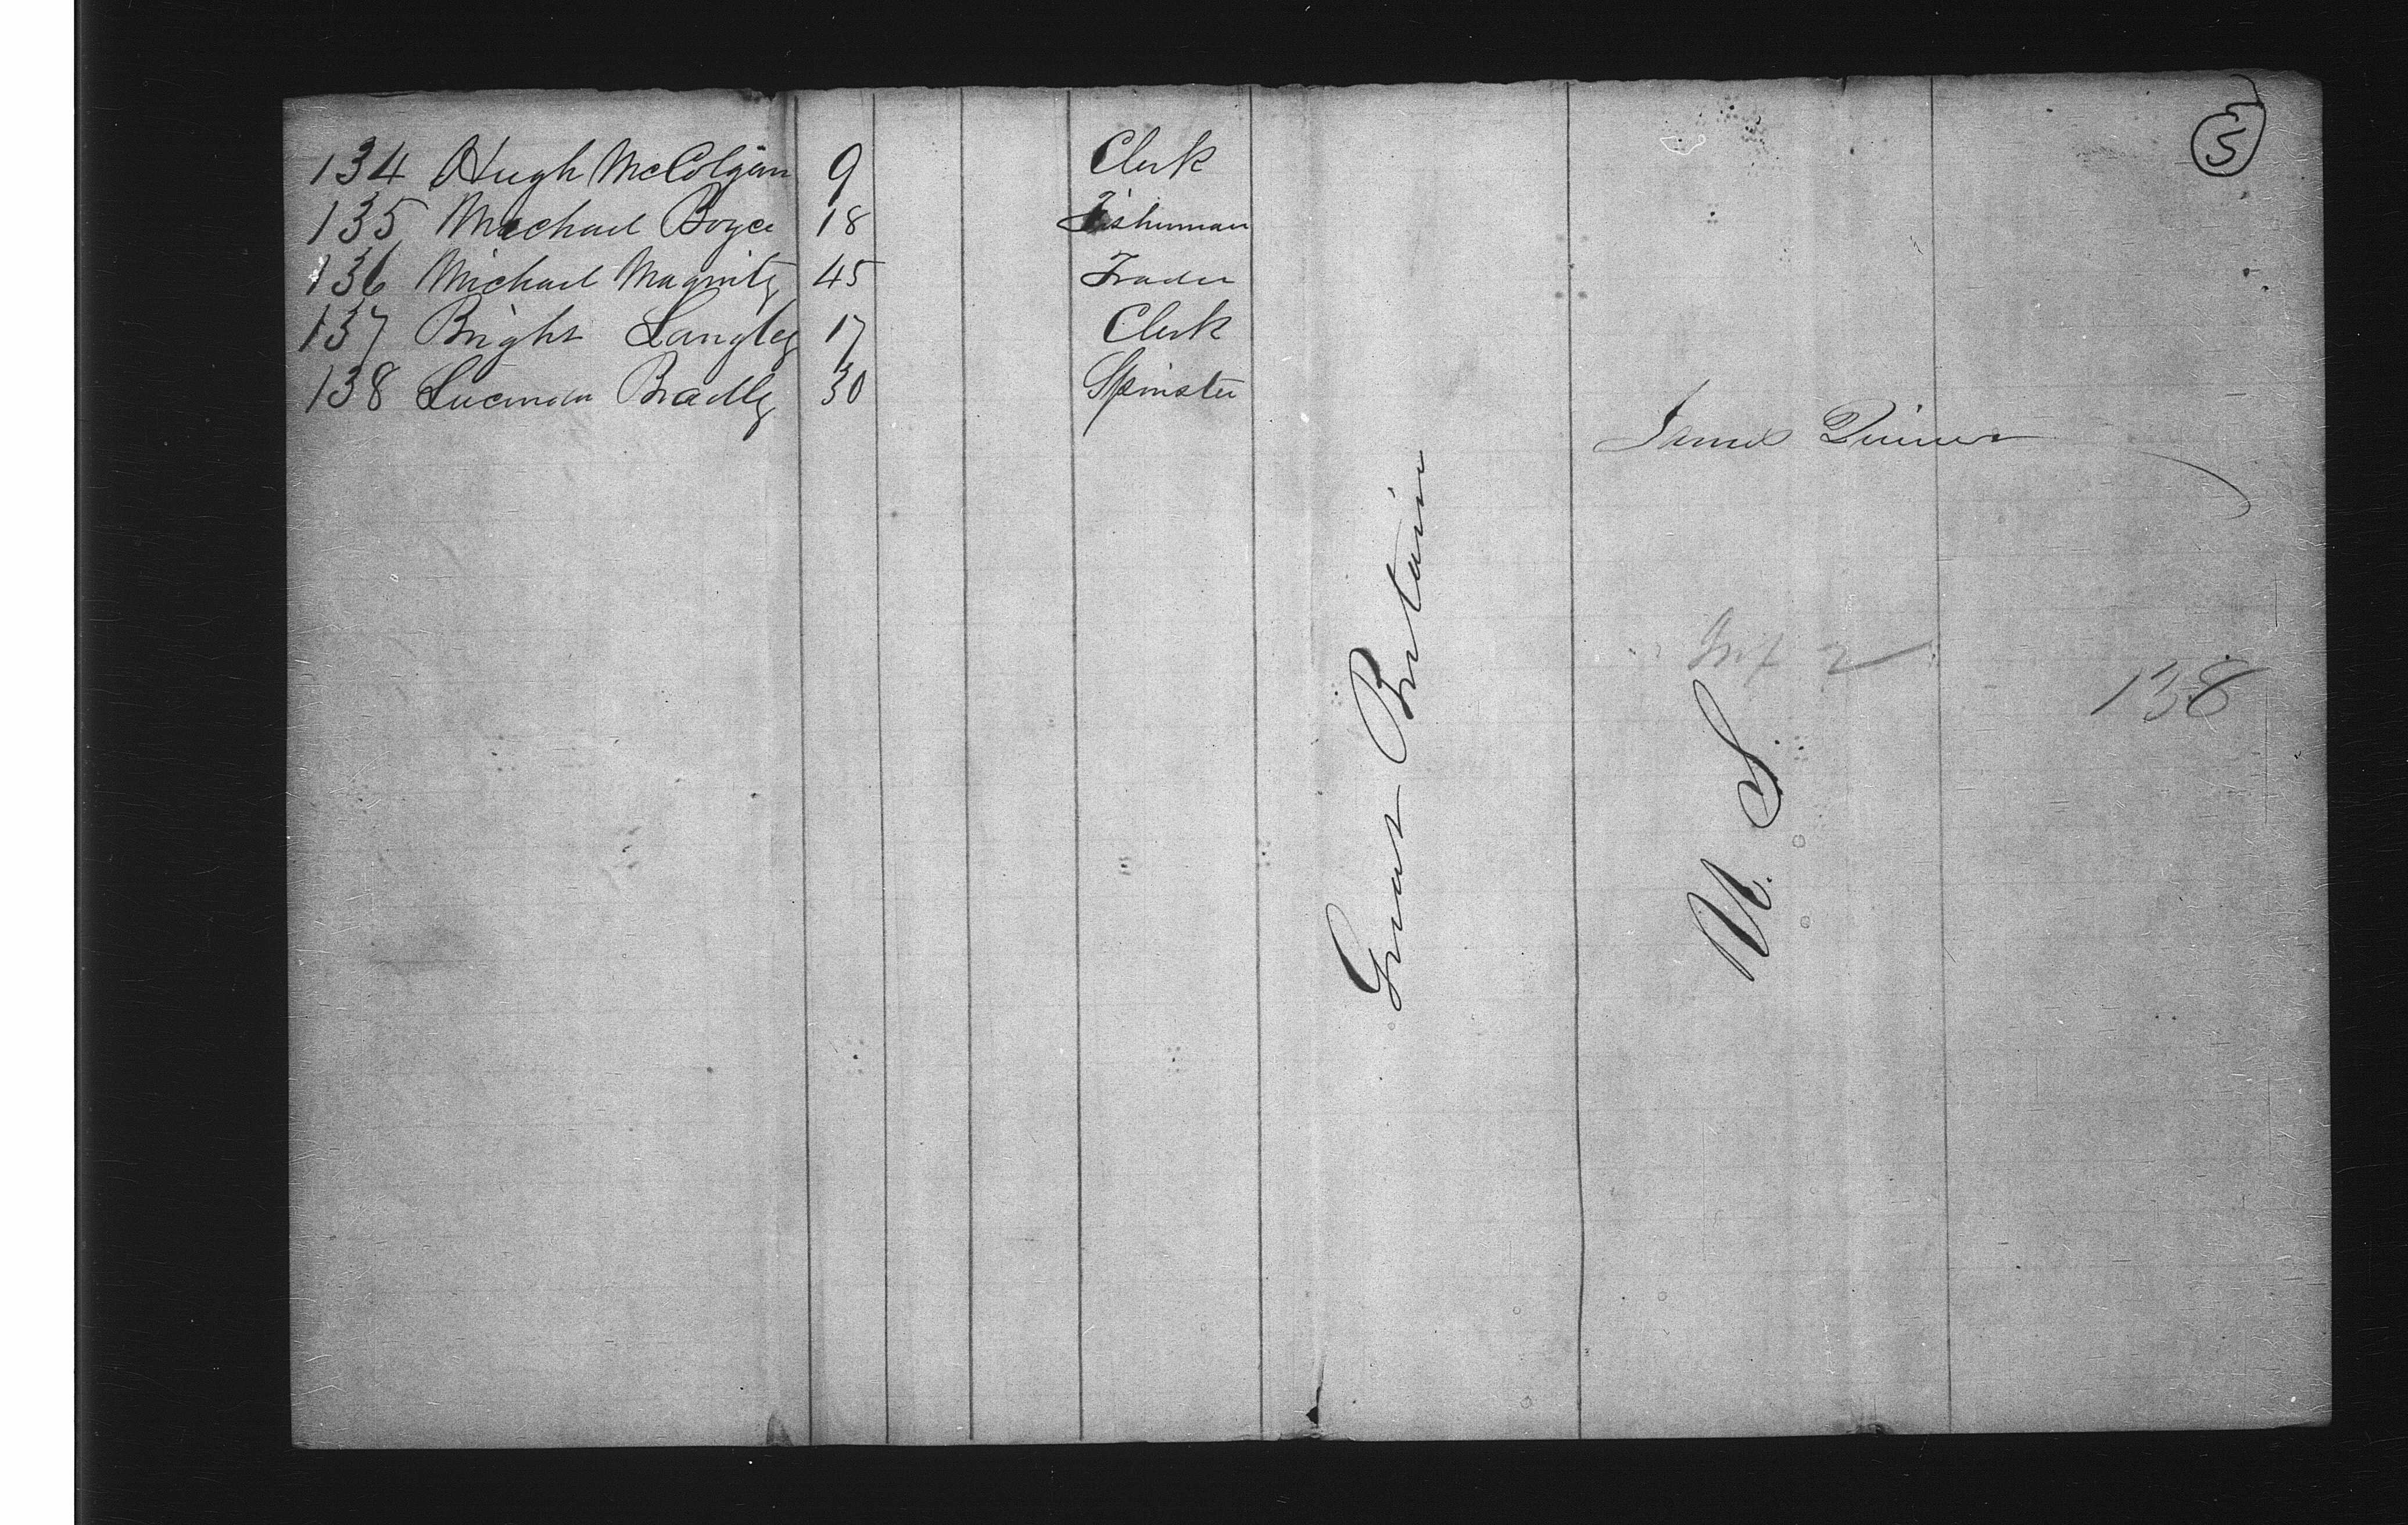 5
134 Hugh McColgan 9 Clerk
135 Michael Boyce 18 Fisherman
136 Michael Maginty 45 Trader
137 Bright Langley 17 Clerk
138 Lucinda Bradly 30 Spinster
James
Great Britain
U. S
138